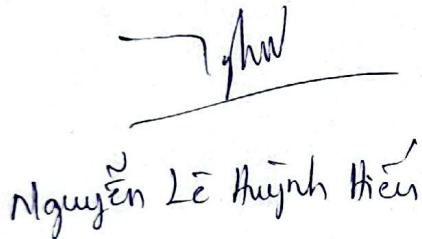 Nguyễn Lê Huỳnh Hiếu